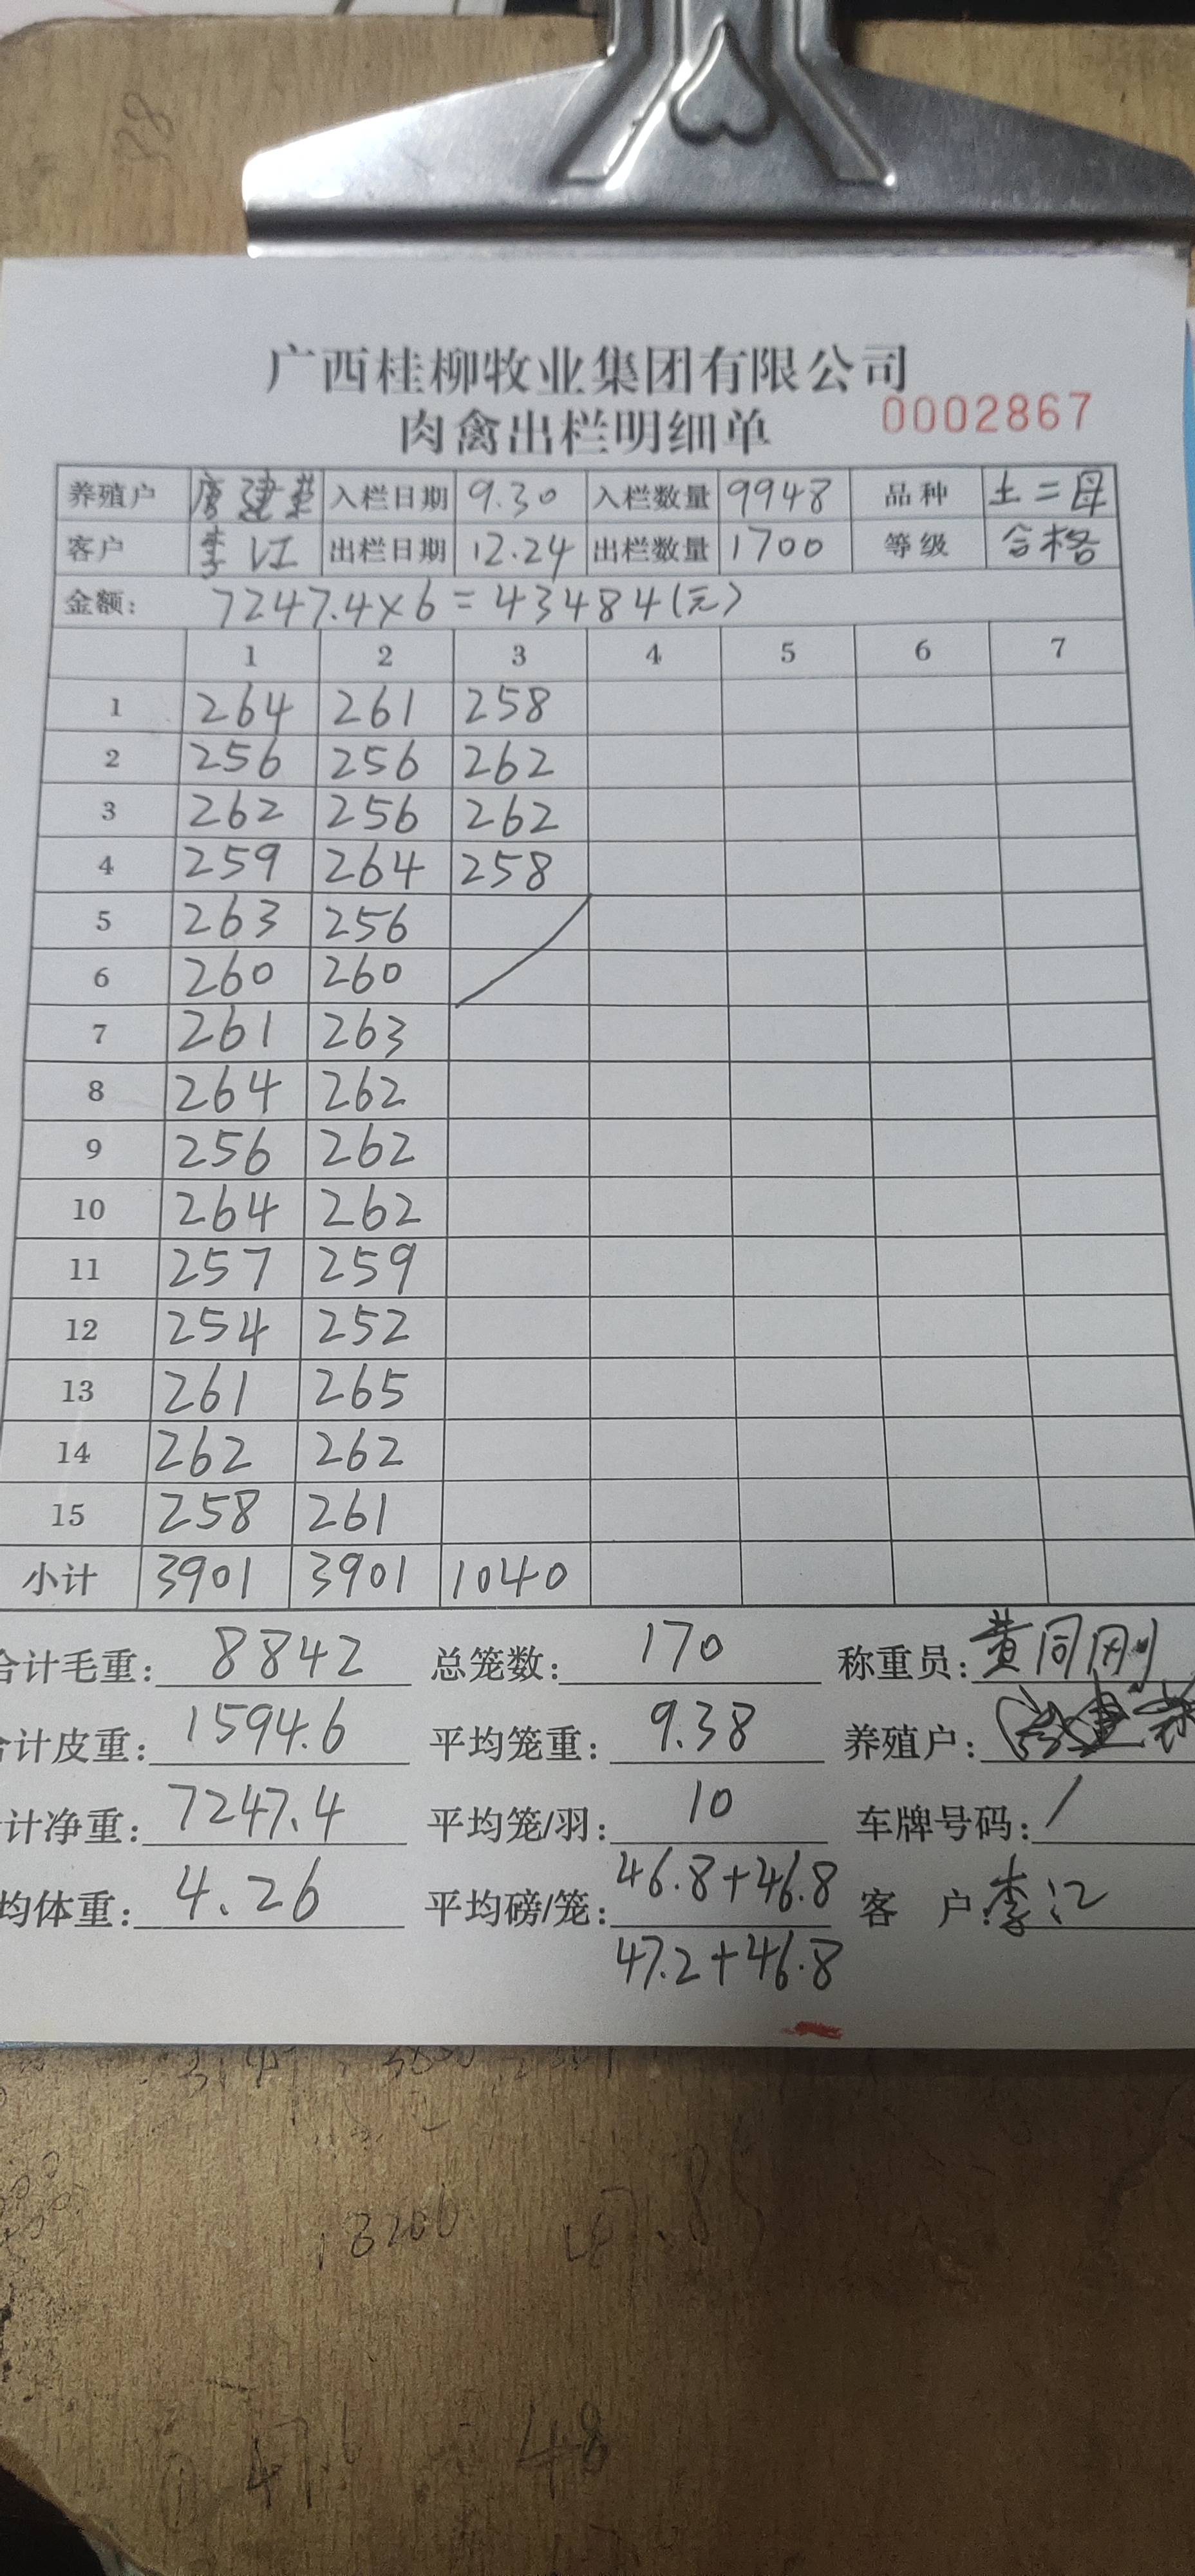 广西桂柳牧业集团有限公司
肉禽出栏明细单 0002867
养殖户 唐建荣 入栏日期 9.30 入栏数量 9948 品种 土二母
客户 李江 出栏日期 12.24 出栏数量 1700 等级 合格
金额: 7247.4×6=43484(元)
1 2 3 4 5 6 7
1 264 261 258
2 256 256 262
3 262 256 262
4 259 264 258
5 263 256
6 260 260
7 261 263
8 264 262
9 256 262
10 264 262
11 257 259
12 254 252
13 261 265
14 262 262
15 258 261
小计 3901 3901 1040
合计毛重: 8842 总笼数: 170 称重员: 黄同刚
计皮重: 1594.6 平均笼重: 9.38 养殖户: 唐建荣
计净重: 7247.4 平均笼/羽: 10 车牌号码: /
均体重: 4.26 平均磅/笼: 46.8+46.8 客 户: 李江
47.2+46.8
3200
47.6 48